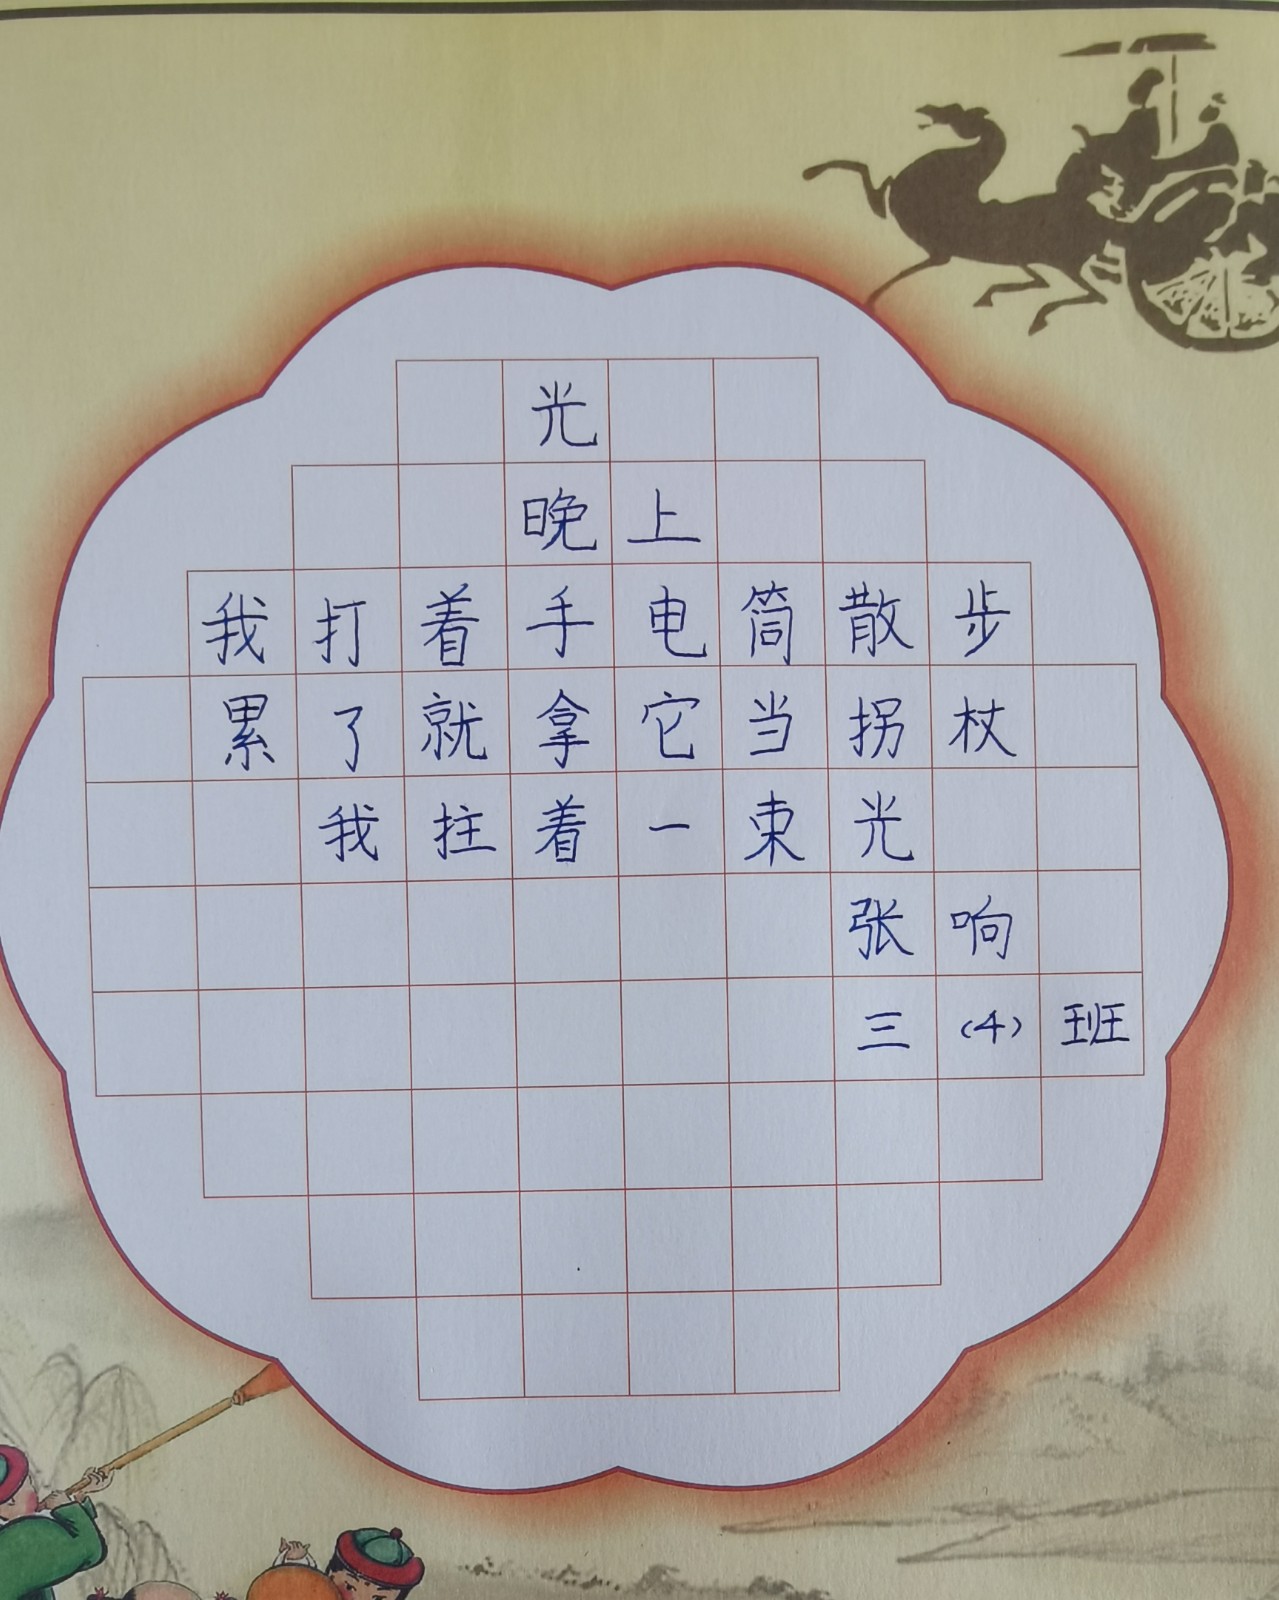 光
晚上
我打着手电筒散步
累了就拿它当拐杖
我拄着一束光
张响
三(4)班